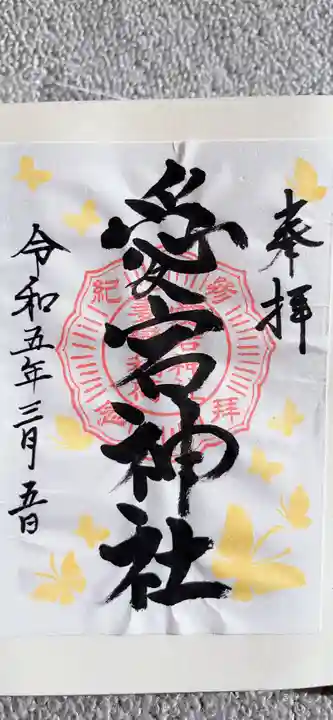 奉拝
愛宕神社
令和五年三月五日
參拜紀念